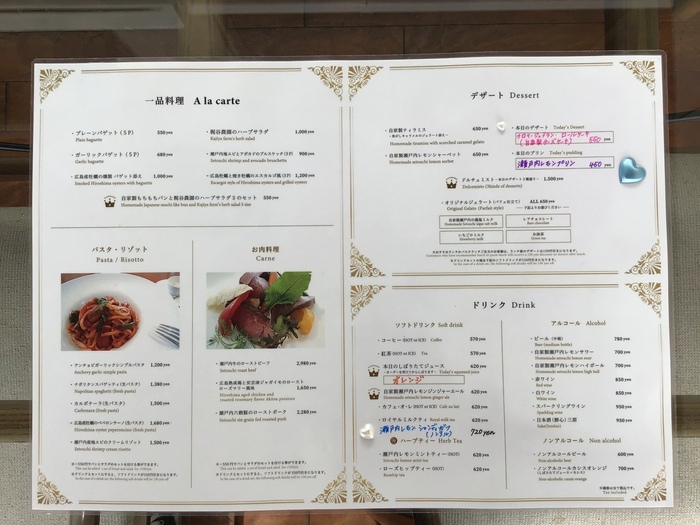 一品料理 A la carte
・プレーンバゲット(5P) 550 yen
Plain baguette
・ガーリックバゲット(5P) 680 yen
Garlic baguette
・広島産牡蠣の燻製 バゲット添え 1,000 yen
Smoked Hiroshima oysters with baguette
・梶谷農園のハーブサラダ 1,000 yen
Kajiya farm's herb salad
・瀬戸内海エビとアボカドのブルスケッタ(3P) 900 yen
Setouchi shrimp and avocado bruschetta
・広島産牡蠣と焼き牡蠣のエスカルゴ風(3P) 1,200 yen
Escargot style of Hiroshima oysters and grilled oyster
自家製もちもちパンと梶谷農園のハーブサラダSのセット 550 yen
Homemade Japanese mochi like bun and Kajiya farm's herb salad S size
パスタ・リゾット
Pasta / Risotto
・アンチョビガーリックシンプルパスタ 1,200 yen
Anchovy garlic simple pasta
・ナポリタンスパゲッティ(生パスタ) 1,380 yen
Napolitan spaghetti (fresh pasta)
・カルボナーラ(生パスタ) 1,500 yen
Carbonara (fresh pasta)
・広島産牡蠣のペペロンチーノ(生パスタ) 1,680 yen
Hiroshima oyster peperoncino (fresh pasta)
・瀬戸内産地エビのクリームリゾット 1,500 yen
Setouchi shrimp cream risotto
お肉料理
Carne
・瀬戸内牛のローストビーフ 2,980 yen
Setouchi roast beef
・広島熟成鶏と安芸津ジャガイモのロースト
ローズマリー風味 1,650 yen
Hiroshima aged chicken and
roasted rosemary flavor Akitsu potatoes
・瀬戸内六穀豚のローストポーク 2,280 yen
Setouchi six-grain fed roasted pork
デザート Dessert
・自家製ティラミス 650 yen
～焦がしキャラメルのジェラート添え～
Homemade tiramisu with scorched caramel gelato
・自家製瀬戸内レモンシャーベット 650 yen
Homemade Setouchi lemon sorbet
・本日のデザート Today's Dessert
550 yen
・本日のプリン Today's pudding
瀬戸内レモンプリン 450 yen
ドルチェミスト～本日のデザート3種盛り～ 1,500 yen
Dolcemisto (3kinds of desserts)
・オリジナルジェラート(パフェ仕立て) ALL 650 yen
Original Gelato (Parfait style) ～下記よりお選びください～
自家製瀬戸内の藻塩ミルク
Homemade Setouchi algae salt milk
レアチョコレート
Rare chocolate
いちごのミルク
Strawberry milk
お抹茶
Green tea
ドリンク Drink
ソフトドリンク Soft drink
・コーヒー(HOT or ICE) Coffee 570 yen
・紅茶(HOT or ICE) Tea 570 yen
本日のしぼりたてジュース 620 yen
Today's squeezed juice
オレンジ
自家製瀬戸内レモンジンジャーエール 620 yen
Homemade Setouchi lemon ginger ale
・カフェ・オ・レ(HOT or ICE) Cafe au lait 620 yen
・ロイヤルミルクティ Royal milk tea 620 yen
瀬戸内レモン シャンディガフ
(ノンアル) 720 yen
ハーブティー Herb Tea
・瀬戸内レモンミントティー(HOT) 620 yen
Setouchi lemon mint tea
・ローズヒップティー(HOT) 620 yen
Rosehip tea
アルコール Alcohol
・ビール(中瓶) 780 yen
Beer (medium bottle)
・自家製瀬戸内レモンサワー 700 yen
Homemade Setouchi lemon sour
・自家製瀬戸内レモンハイボール 700 yen
Homemade Setouchi lemon high ball
・赤ワイン 850 yen
Red wine
・白ワイン 850 yen
White wine
・スパークリングワイン 950 yen
Sparkling wine
・日本酒(酔心)二郎 950 yen
Sake(Suishin)
ノンアルコール Non alcohol
・ノンアルコールビール 600 yen
Non-alcoholic beer
・ノンアルコールカシスオレンジ 700 yen
Non-alcoholic cassis orange
※価格は全て税込です。
Tax included